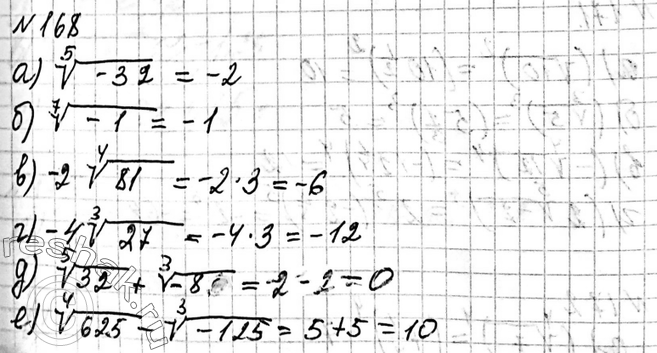 №168
а) ⁵√-32 = -2
б) ⁷√-1 = -1
в) -2 ⁴√81 = -2·3 = -6
г) -4 ³√27 = -4·3 = -12
д) ⁵√32 + ³√-8 = 2 - 2 = 0
е) ⁴√625 - ³√-125 = 5+5 = 10
reshak.ru